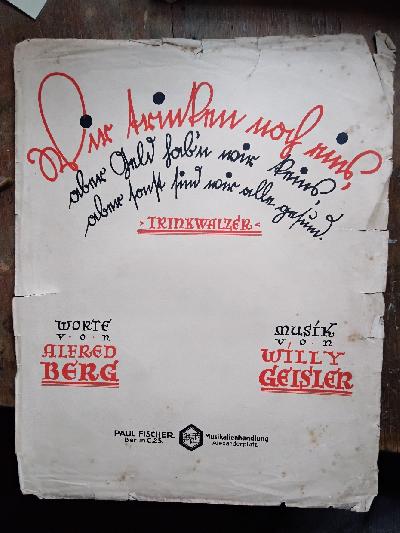 Wir trinken noch eins,
aber Geld hab'n wir keins,
aber sonst sind wir alle gesund.
TRINKWALZER
WORTE
von
ALFRED
BERG
MUSIK
von
WILLY
GEISLER
PAUL FISCHER
Berlin C25.
Musikalienhandlung
Alexanderplatz